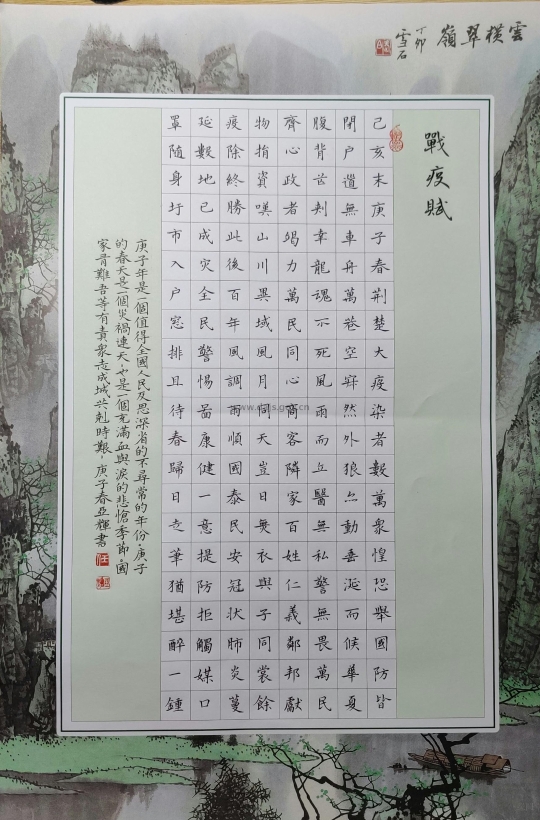 雲橫翠嶺
丁卯
雪石
戰疫賦
己亥末庚子春荆楚大疫染者數萬衆惶恐舉國防皆
閉户道無車舟萬巷空寂然外狼亦動垂涎而候華夏
腹背苦刺幸龍魂不死風雨而立醫無私警無畏萬民
齊心政者竭力萬民同心商客隣家百姓仁義鄰邦獻
物捐資嘆山川異域風月同天豈曰無衣與子同裳餘
疫除終勝此後百年風調雨順國泰民安冠狀肺炎蔓
延數地已成灾全民警惕康健一意提防拒觸媒口
罩隨身圩市入户窓排且待春歸日走筆猶堪醉一鍾
庚子年是一個值得全國人民反思深省的不尋常的年份。庚子
的春天是一個災禍連天,也是一個充滿血與淚的悲愴季節。國
家有難吾等有責衆志成城共剋時艱。庚子春亞輝書